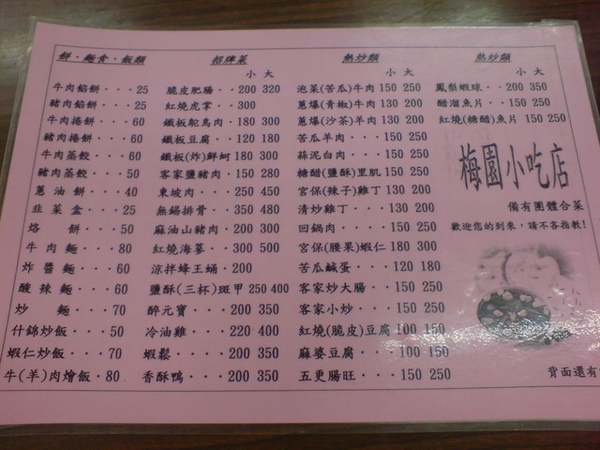 餅·麵食·飯類
牛肉餡餅···25
豬肉餡餅···25
牛肉捲餅···60
豬肉捲餅···60
牛肉蒸餃···60
豬肉蒸餃···50
蔥油餅···30
韭菜盒···25
烙　餅···50
牛肉麵···80
炸醬麵···60
酸辣麵···60
炒　麵···70
什錦炒飯···50
蝦仁炒飯···70
牛(羊)肉燴飯·80
招牌菜
小 大
脆皮肥腸··200 320
紅燒虎掌···300
鐵板鴕鳥肉·180 300
鐵板豆腐··120 180
鐵板(炸)鮮蚵 180 300
客家鹽豬肉·150 280
東坡肉···250 450
無錫排骨··350 480
麻油山豬肉·200 300
紅燒海蔘··300 500
涼拌蜂王蛹·200
鹽酥(三杯)斑甲 250 400
醉元寶··200 350
冷油雞··220 400
蝦鬆···200 350
香酥鴨··200 350
熱炒類
小 大
泡菜(苦瓜)牛肉 150 250
蔥爆(青椒)牛肉 130 200
蔥爆(沙茶)羊肉 130 200
苦瓜羊肉··150 250
蒜泥白肉··150 250
糖醋(鹽酥)里肌 150 250
宮保(辣子)雞丁 130 200
清炒雞丁···130 200
回鍋肉···150 250
宮保(腰果)蝦仁 180 300
苦瓜鹹蛋··120 180
客家炒大腸·150 250
客家小炒··150 250
紅燒(脆皮)豆腐 100 150
麻婆豆腐···100 150
五更腸旺··150 250
熱炒類
小 大
鳳梨蝦球··200 350
醋溜魚片··150 250
紅燒(糖醋)魚片 150 250
梅園小吃店
備有團體合菜
歡迎您的到來,請不客指教!
背面還有